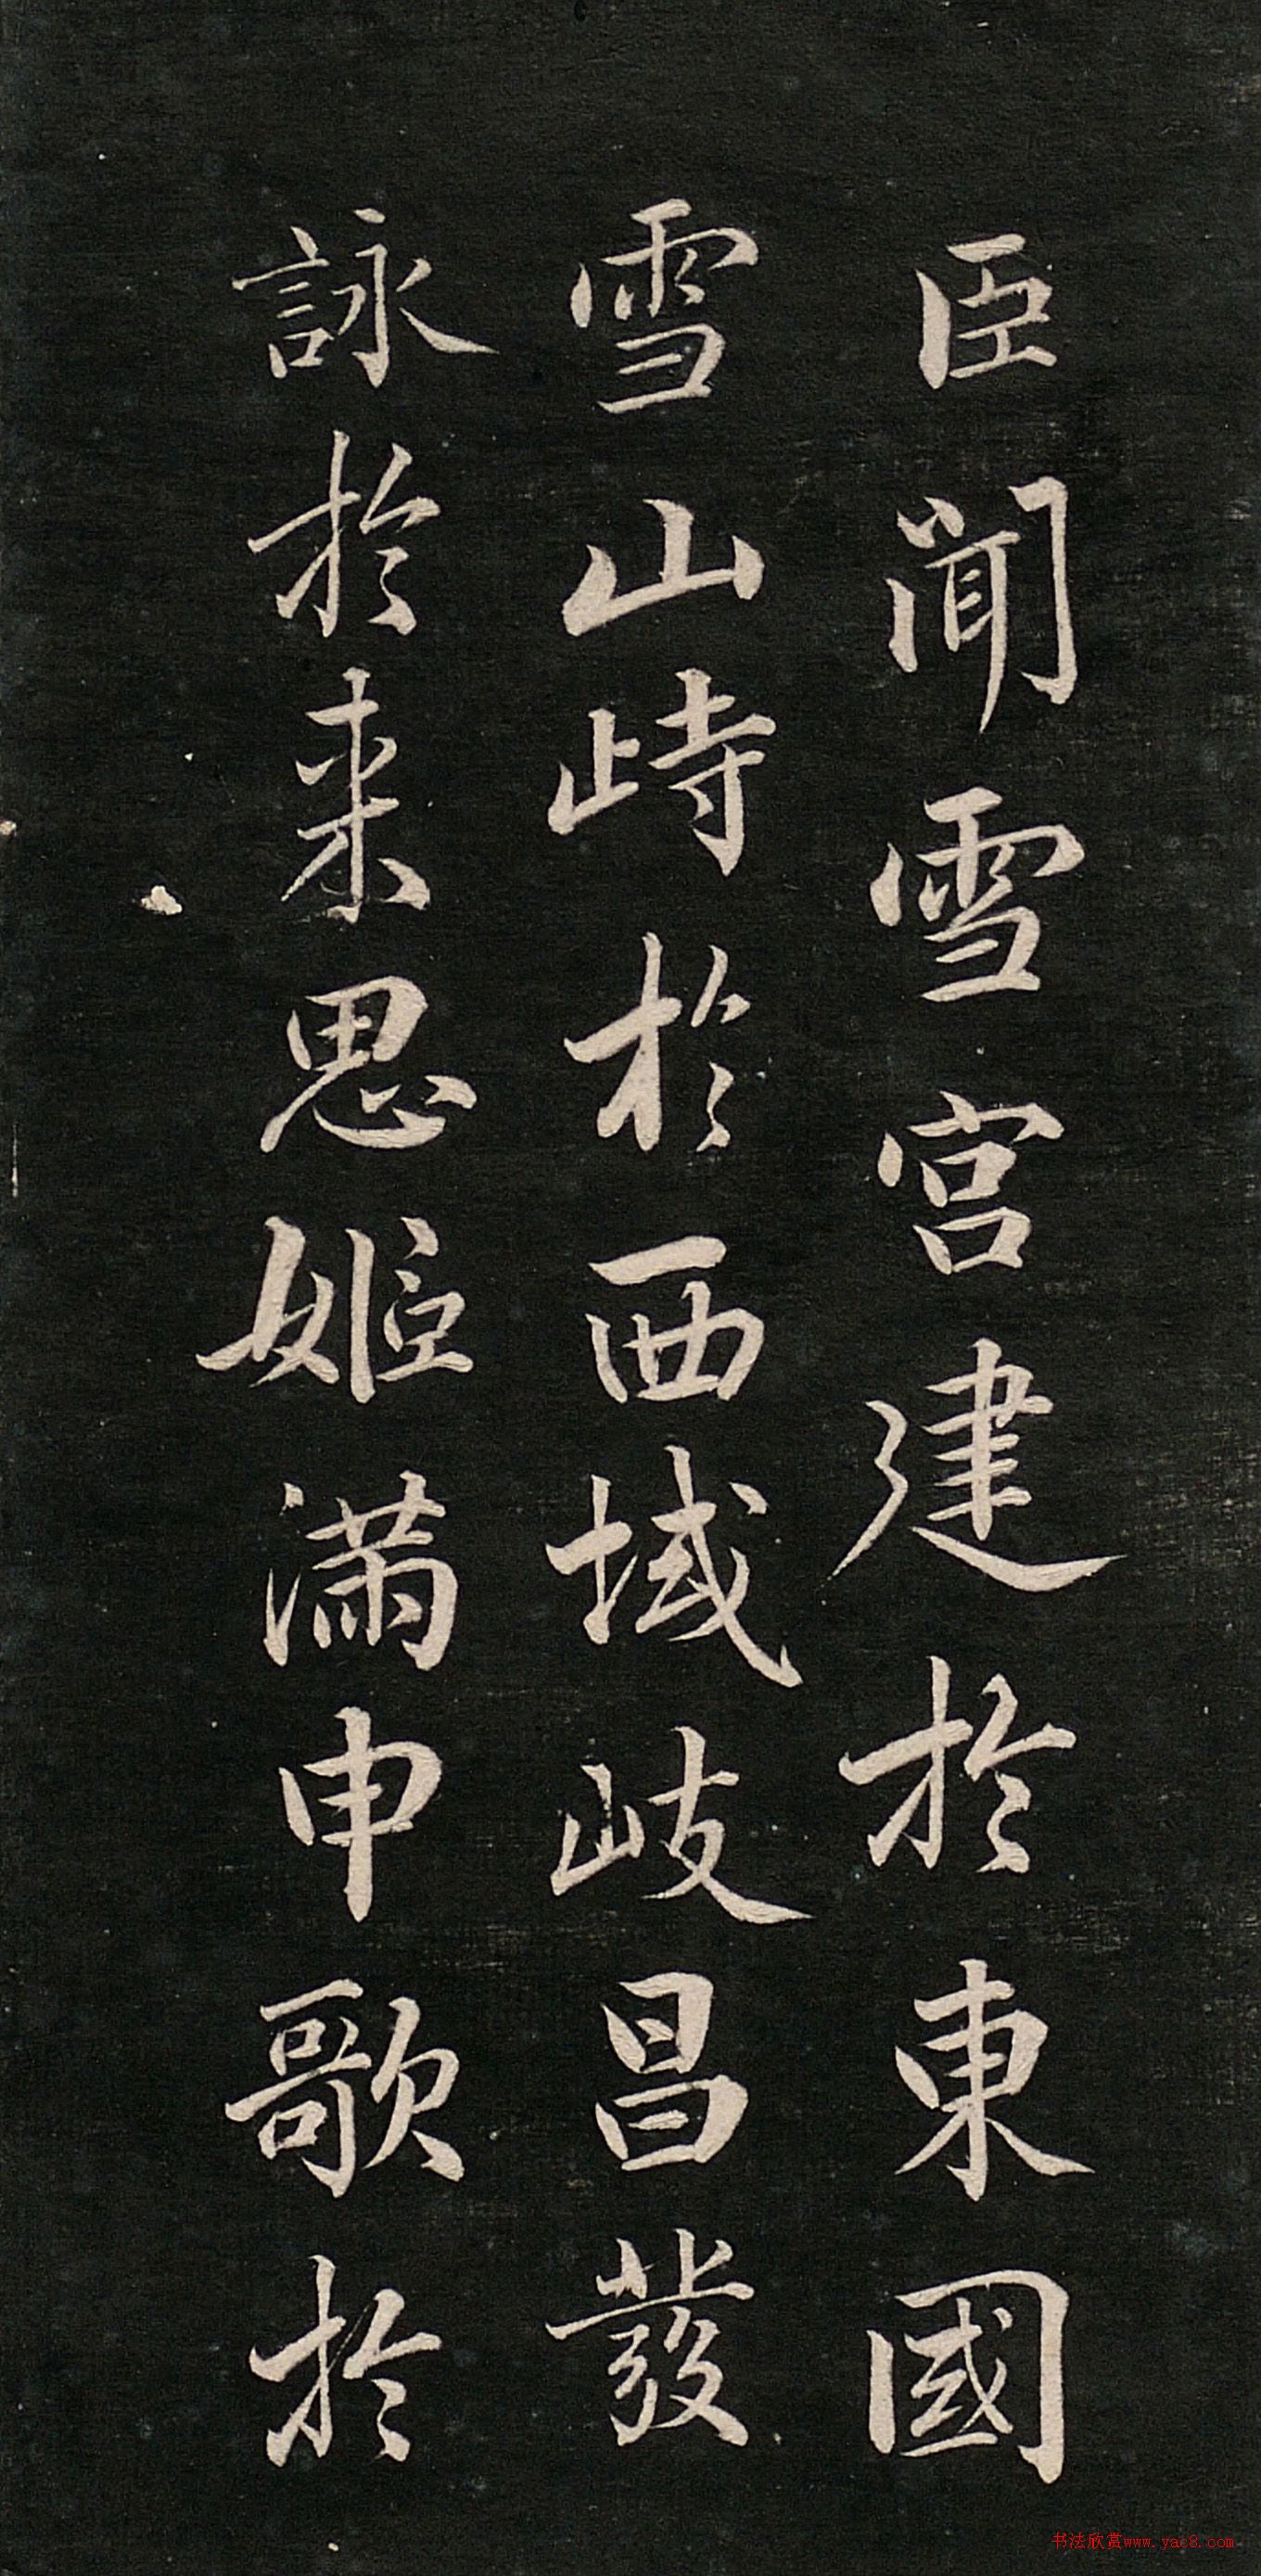 臣聞雪宮建於東國
雪山峙於西域岐昌發
詠於来思姬滿申歌於
书法欣赏www.yac8.com